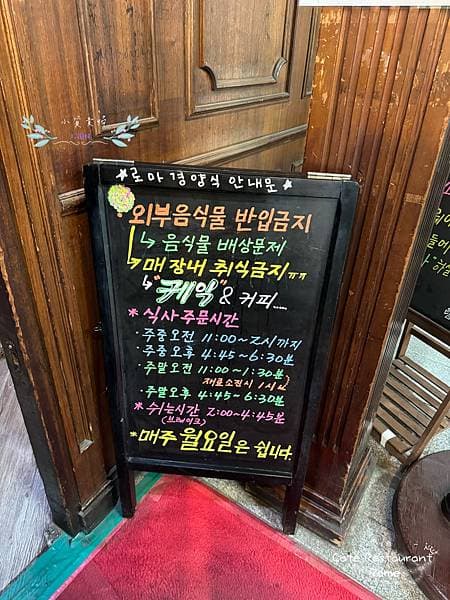 ★로마경양식 안내문★
외부음식물 반입금지
↳ 음식물 배상문제
→매장내 취식금지ㅠㅠ
↳ "케익" & 커피
* 식사 주문시간
· 주중오전 11:00~2시까지
· 주중오후 4:45~6:30분
· 주말오전 11:00~1:30분
재료소진시 1시
· 주말오후 4:45~6:30분
* 쉬는시간 2:00~4:45분
(브레이크)
* 매주 월요일은 쉽니다.
Cafe Restaurant
Rome